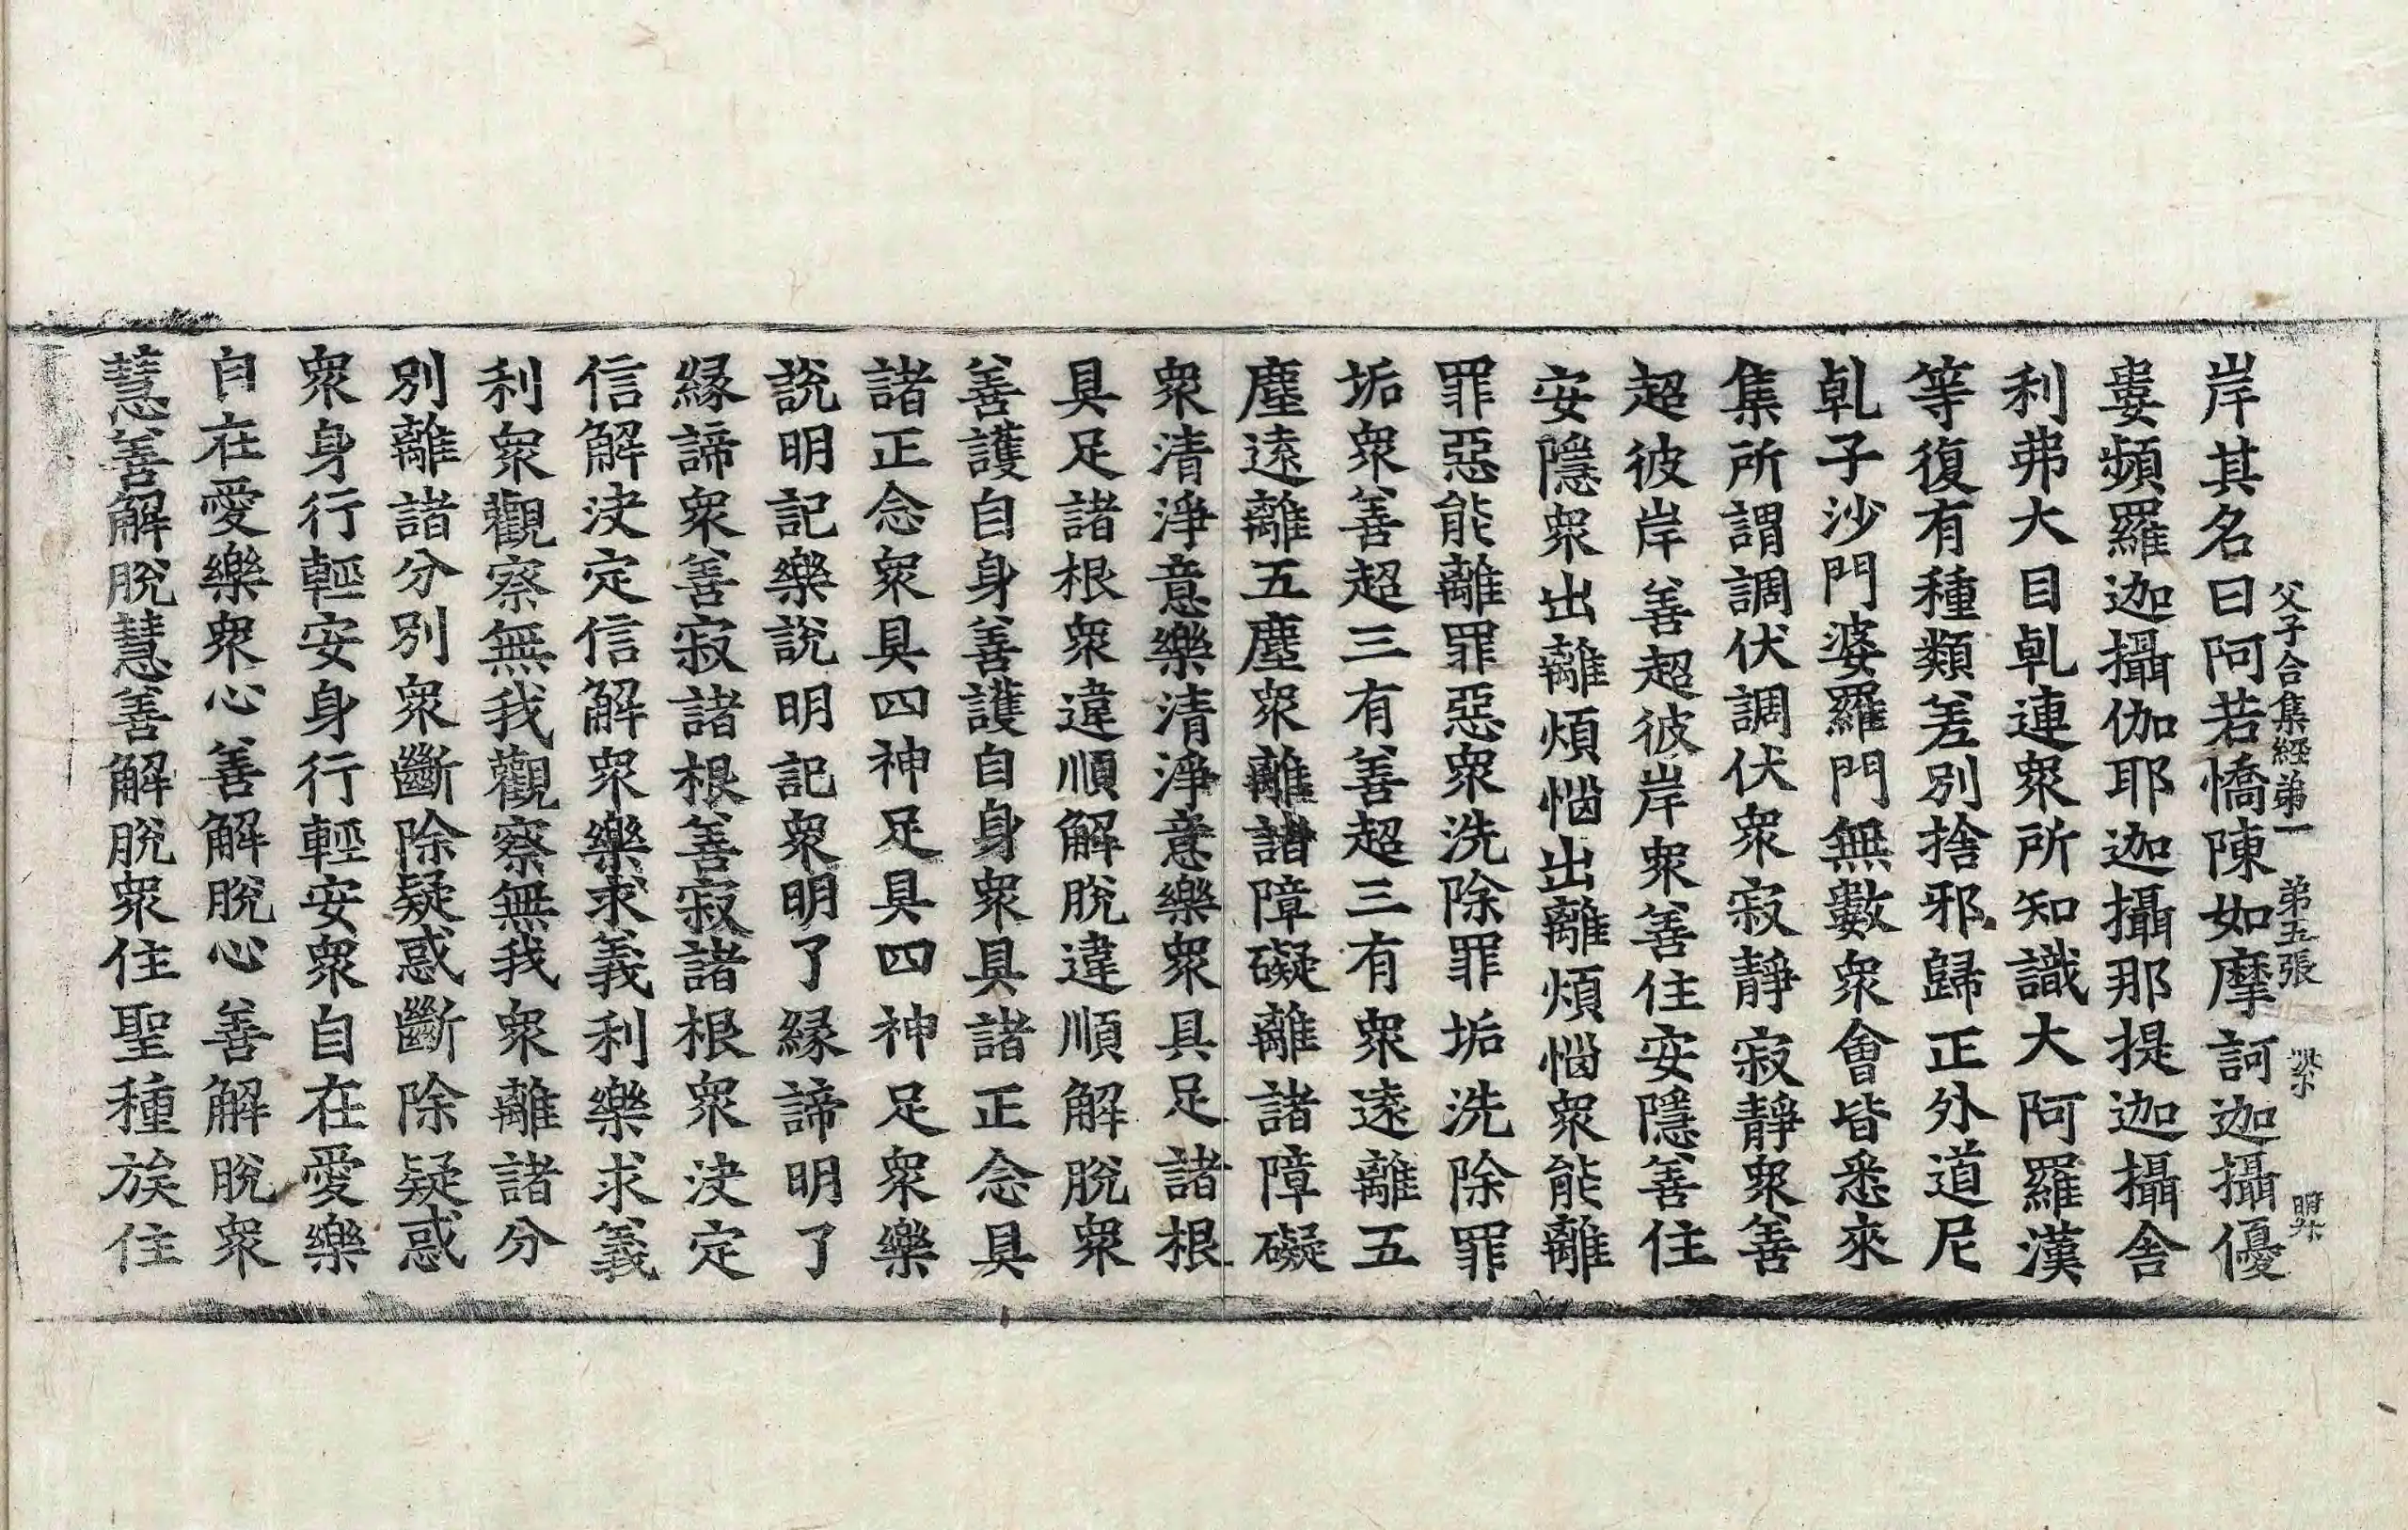 父子合集經第一 第五張
岸其名曰阿若憍陳如摩訶迦攝優
婁頻羅迦攝伽耶迦攝那提迦攝舍
利弗大目乹連衆所知識大阿羅漢
等復有種類差別捨邪歸正外道尼
乹子沙門婆羅門無數衆會皆悉來
集所謂調伏調伏衆寂靜寂靜衆善
超彼岸善超彼岸衆善住安隱善住
安隱衆出離煩惱出離煩惱衆能離
罪惡能離罪惡衆洗除罪垢洗除罪
垢衆善超三有善超三有衆遠離五
塵遠離五塵衆離諸障礙離諸障礙
衆清淨意樂清淨意樂衆具足諸根
具足諸根衆違順解脫違順解脫衆
善護自身善護自身衆具諸正念具
諸正念衆具四神足具四神足衆樂
說明記樂說明記衆明了緣諦明了
緣諦衆善寂諸根善寂諸根衆決定
信解決定信解衆樂求義利樂求義
利衆觀察無我觀察無我衆離諸分
別離諸分別衆斷除疑惑斷除疑惑
衆身行輕安身行輕安衆自在愛樂
自在愛樂衆心善解脫心善解脫衆
慧善解脫慧善解脫衆住聖種族住